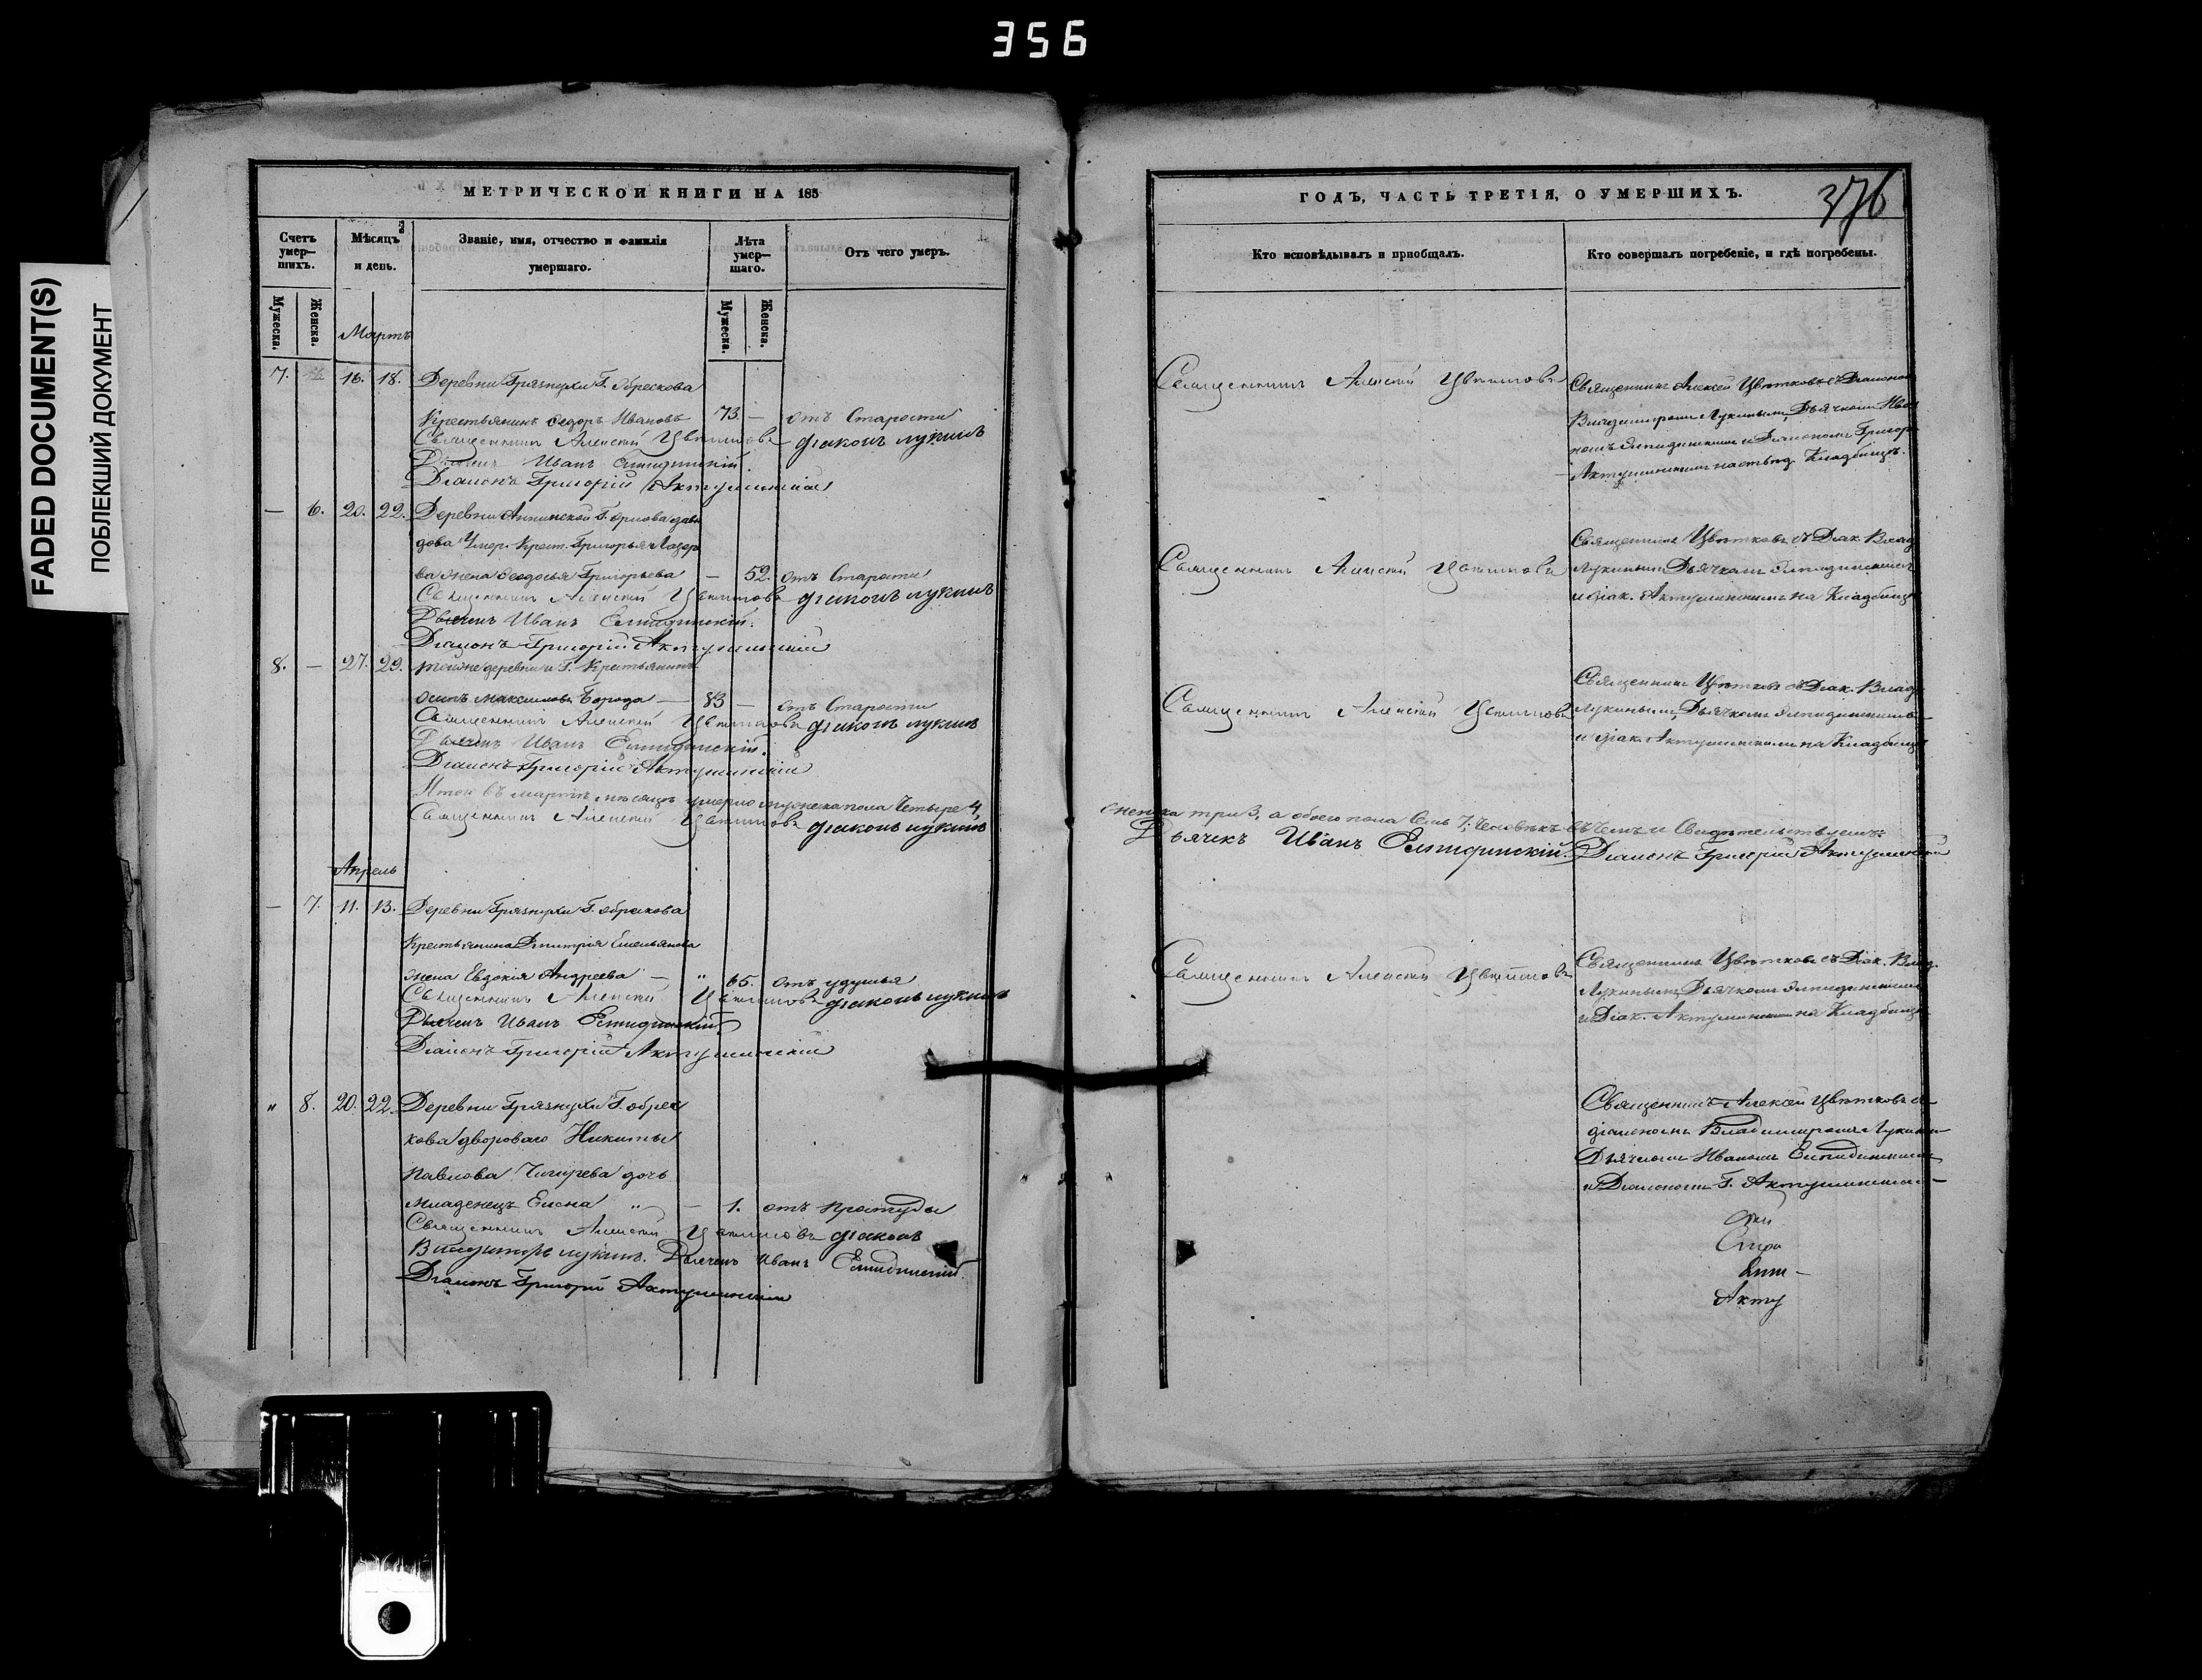 356
FADED DOCUMENT(S)
ПОБЛЕКШИЙ ДОКУМЕНТ
МЕТРИЧЕСКОЙ КНИГИ НА 185
Счетъ умер— шихъ.
Мѣсяцъ и день.
Званіе, имя, отчество и фамилія умершаго.
Лѣта умер— шаго.
Отъ чего умеръ.
Мужеска.
Женска.
Мужеска.
Женска.
Мартъ
7. 16. 18. Деревни Грязнухи Г. Обрескова
Крестьянинъ Ѳедоръ Ивановъ 73. — отъ Старости
Священникъ Алексій Цвѣтковъ Діаконъ Лукинъ
Дьячекъ Иванъ Елпидинскій.
Діаконъ Григорій Актушинскій
— 6. 20. 22. Деревни Аннинской Г. Орлова Дави
дова Умер. Крест. Григорья Лазаре
ва жена Ѳеодосья Григорьева — 52. отъ Старости
Священникъ Алексій Цвѣтковъ Діаконъ Лукинъ
Дьячекъ Иванъ Елпидинскій.
Діаконъ Григорій Актушинскій
8. — 27. 29. тойже деревни и Г. Крестьянинъ
Осипъ Максимовъ Борода — 83 — отъ Старости
Священникъ Алексій Цвѣтковъ Діаконъ Лукинъ
Дьячекъ Иванъ Елпидинскій.
Діаконъ Григорій Актушинскій
Итого въ мартѣ мѣсяцѣ умерло мужеска пола Четыре 4,
Священникъ Алексій Цвѣтковъ Діаконъ Лукинъ
Апрель
— 7. 11. 13. Деревни Грязнухи Г. Обрескова
Крестьянина Дмитрія Емельянова
жена Евдокія Андреева — „ 65. отъ удушья
Священникъ Алексій Цвѣтковъ Діаконъ Лукинъ
Дьячекъ Иванъ Елпидинскій
Діаконъ Григорій Актушинскій
„ 8. 20. 22. Деревни Грязнухи Г. Обрес
кова двороваго Никиты
Павлова дочь
младенецъ Елена „ — 1. отъ простуды
Священникъ Алексій Цвѣтковъ Діаконъ
Владиміръ Лукинъ. Дьячекъ Иванъ Елпидинскій.
Діаконъ Григорій Актушинскій
ГОДЪ, ЧАСТЬ ТРЕТІЯ, О УМЕРШИХЪ.
376
Кто исповѣдывалъ и пріобщалъ.
Кто совершалъ погребеніе, и гдѣ погребены.
Священникъ Алексій Цвѣтковъ
Священникъ Алексѣй Цвѣтковъ съ Діакономъ
Владиміромъ Лукинымъ, Дьячкомъ Ива
номъ Елпидинскимъ и Діакономъ Григор.
Актушинскимъ Кладбищѣ.
Священникъ Алексій Цвѣтковъ
Священникъ Цвѣтковъ съ Діак. Влад.
Лукинымъ Дьячкомъ Елпидинскимъ
и Діак. Актушинскимъ на Кладбищѣ
Священникъ Алексій Цвѣтковъ
Священникъ Цвѣтковъ съ Діак. Влад.
Лукинымъ, Дьячкомъ Елпидинскимъ
и Діак. Актушинскимъ на Кладбищѣ
женска три 3, а обоего пола Семь 7, Человѣкъ въ чемъ и Свидѣтельствуемъ:
Дьячекъ Иванъ Елпидинскій. Діаконъ Григорій Актушинскій
Священникъ Алексій Цвѣтковъ
Священникъ Цвѣтковъ съ Діак. Влад.
Лукинымъ, Дьячкомъ Елпидинскимъ
и Діак. Актушинскимъ на Кладбищѣ
Священникъ Алексѣй Цвѣтковъ съ
діакономъ Владиміромъ Лукинымъ
Дьячкомъ Иваномъ Елпидинскимъ
и Діакономъ Г. Актушинскимъ
Акту